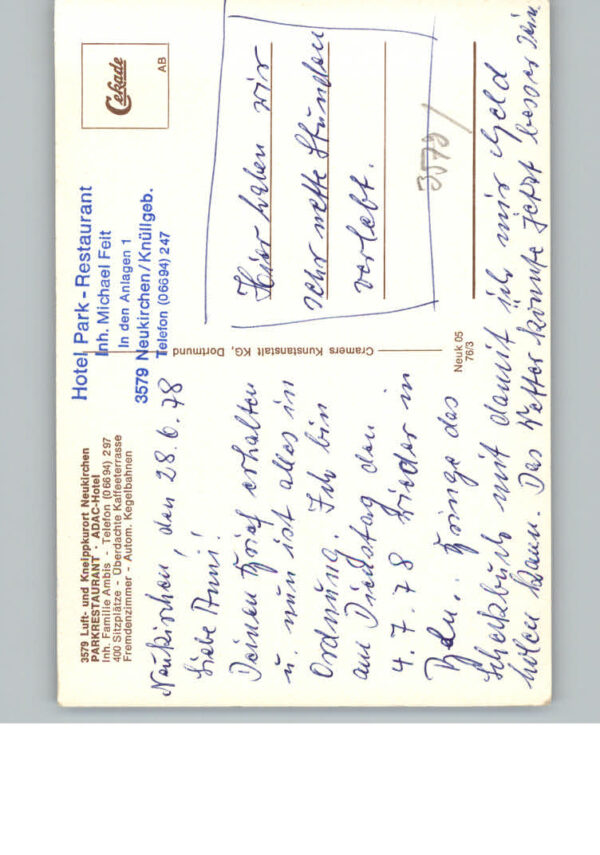 3579 Luft- und Kneippkurort Neukirchen
PARKRESTAURANT - ADAC-Hotel
Inh. Familie Ambis - Telefon (06694) 297
400 Sitzplätze - Überdachte Kaffeeterrasse
Fremdenzimmer - Autom. Kegelbahnen
Hotel Park - Restaurant
Inh. Michael Feit
In den Anlagen 1
3579 Neukirchen/Knüllgeb.
Telefon (06694) 247
Cekade
AB
Neukirchen, den 28.6.78
Liebe Anni!
Deinen Brief erhalten
u. nun ist alles in
Ordnung. Ich bin
am Dienstag den
4.7.78 wieder in
bringe das
Scheckbuch mit damit ich mir Geld
holen kann. Das Wetter könnte jetzt besser sein
Hier haben wir
sehr nette Stunden
verlebt.
3579/
Cramers Kunstanstalt KG, Dortmund
Neuk 05
76/3